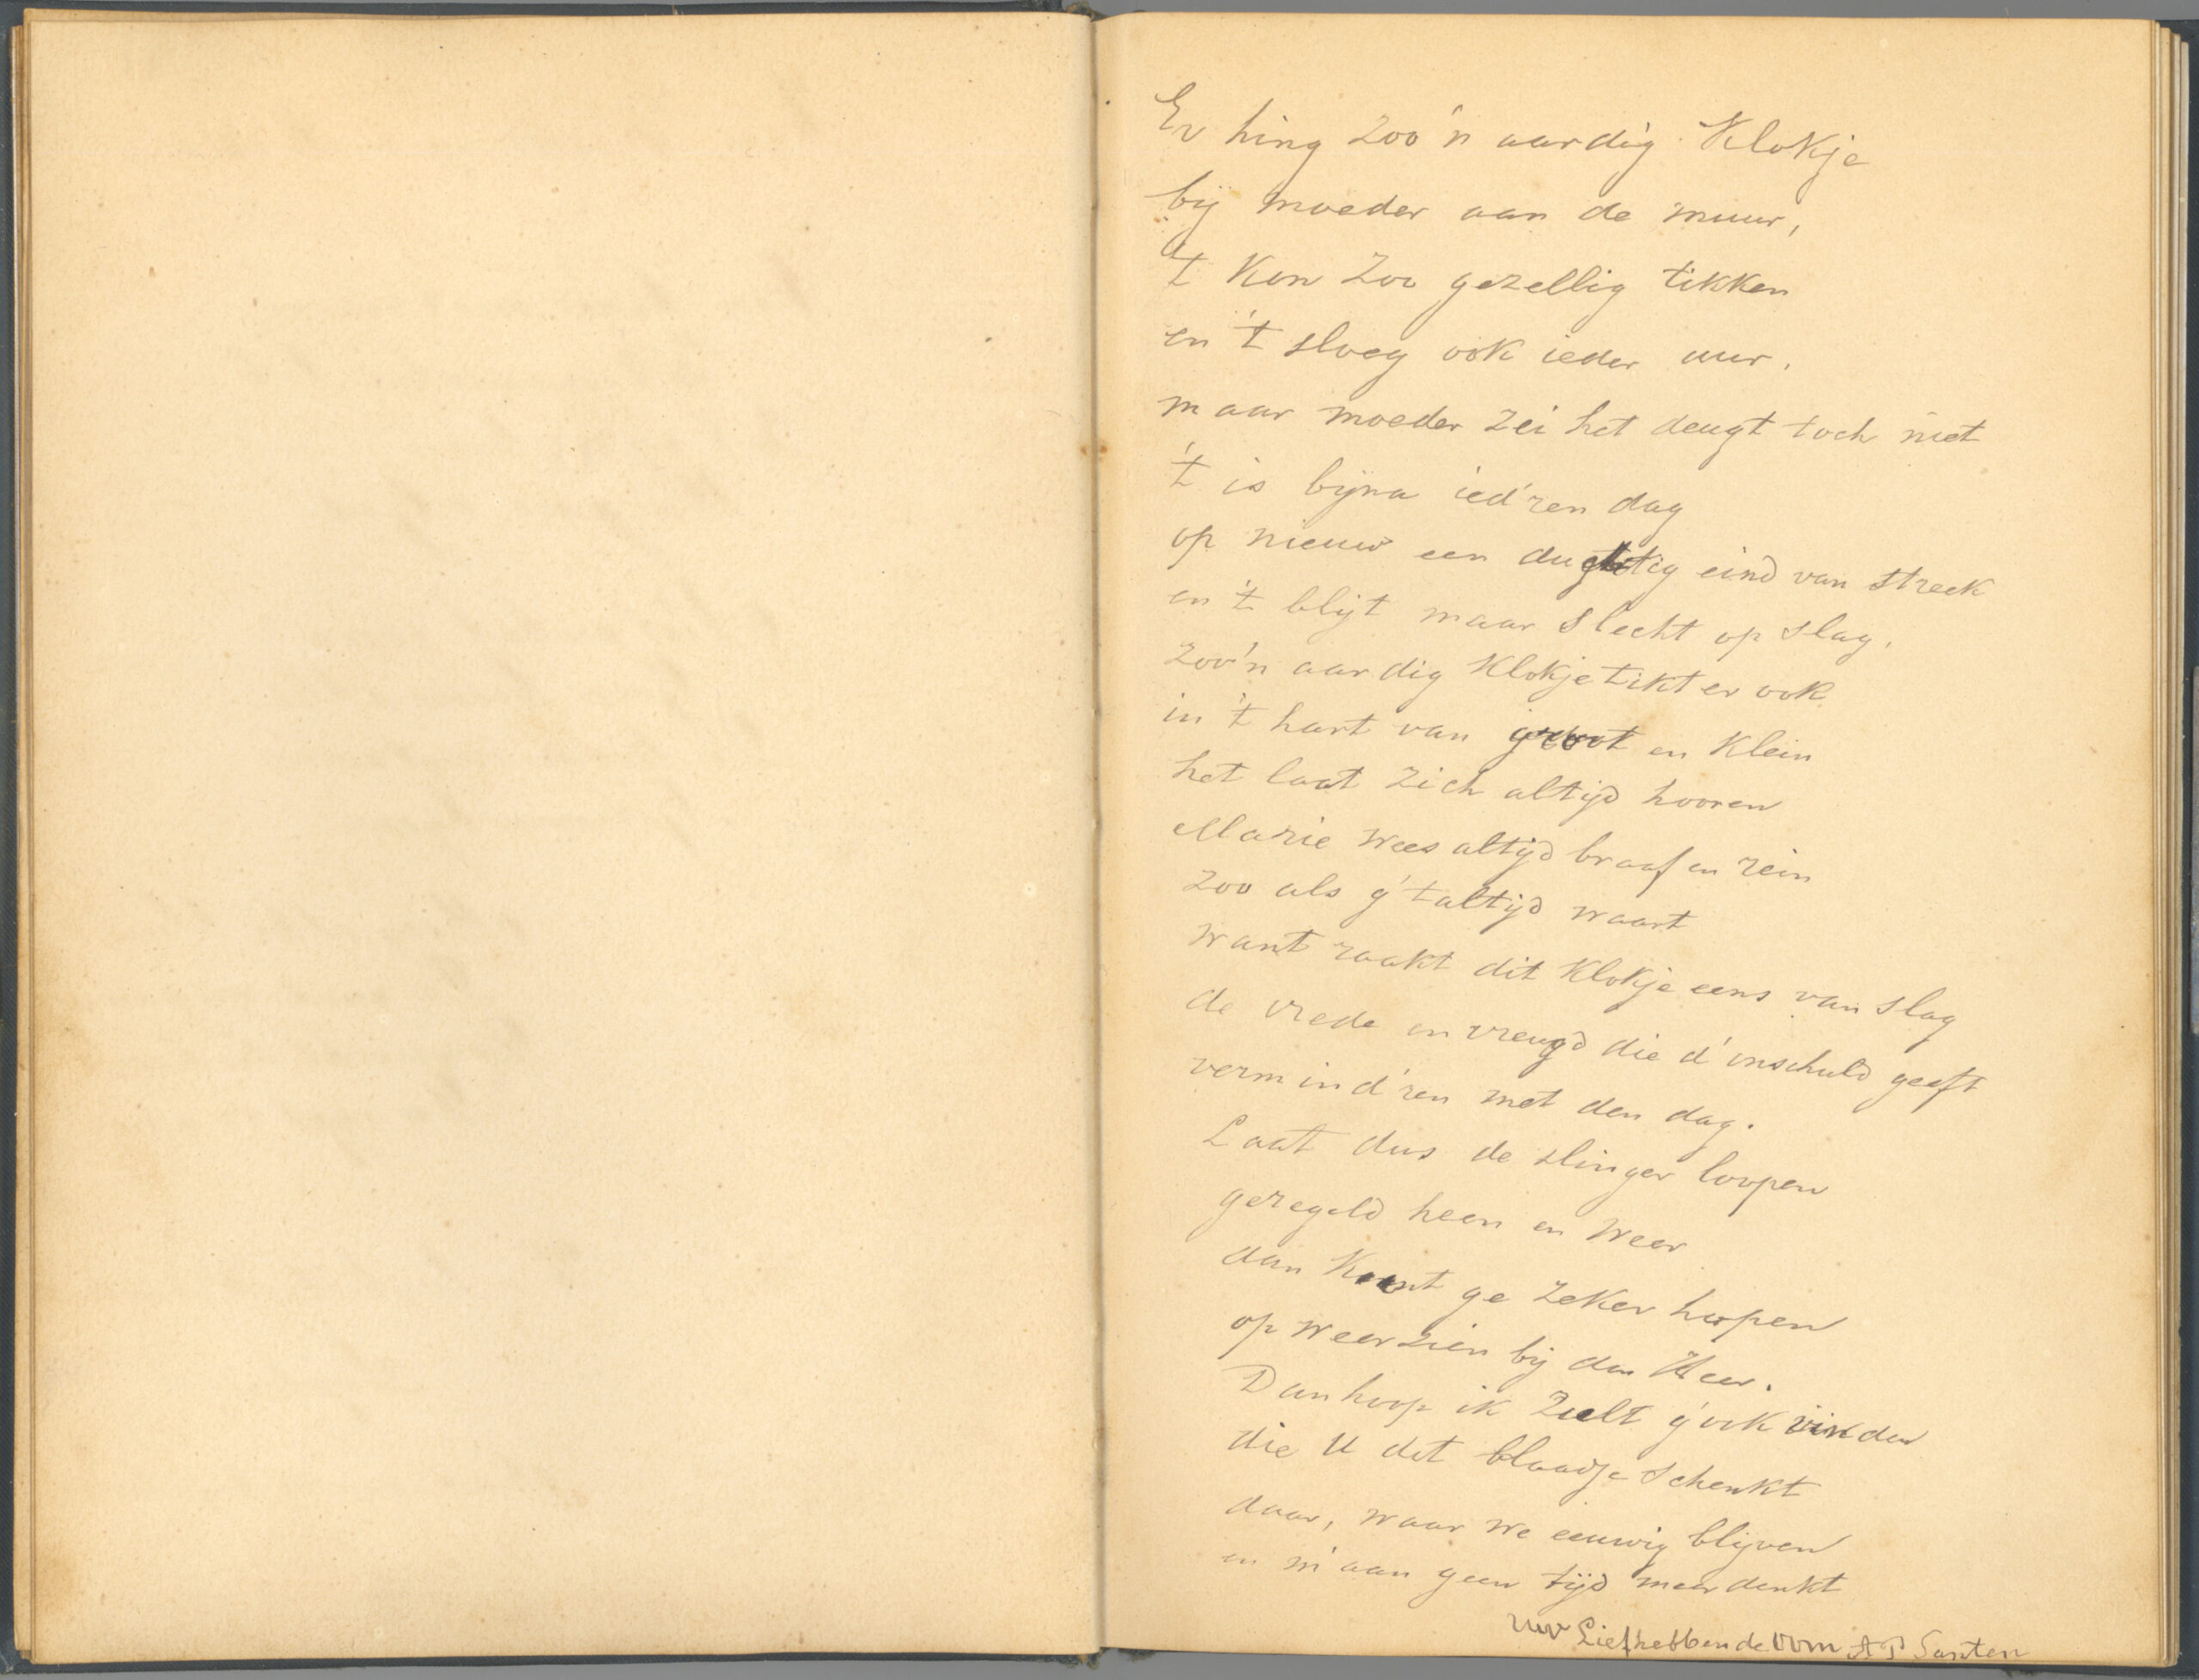 Er hing zoo'n aardig Klokje
bij moeder aan de muur,
't Kon Zoo gezellig tikken
en 't sloeg ook ieder uur.
maar moeder zei het deugt toch niet
't is bijna ied'ren dag
op nieuw een dugtig eind van streek
en 't blijt maar slecht op slag.
Zoo'n aardig Klokje tikt er ook
in 't hart van groot en Klein
het laat zich altijd hooren
Marie wees altijd braaf en rein
zoo als g't altijd waart
want raakt dit Klokje eens van slag
de vrede en vreugd die d'onschuld geeft
vermind'ren met den dag.
Laat dus de slinger loopen
geregeld heen en weer
dan Kunt ge zeker hopen
op weerzien bij den Heer.
Dan hoop ik Zult g'ook vinden
die U dit blaadje schenkt
daar, waar we eeuwig blijven
en m'aan geen tijd meer denkt
uw Liefhebbende oom A P Santen